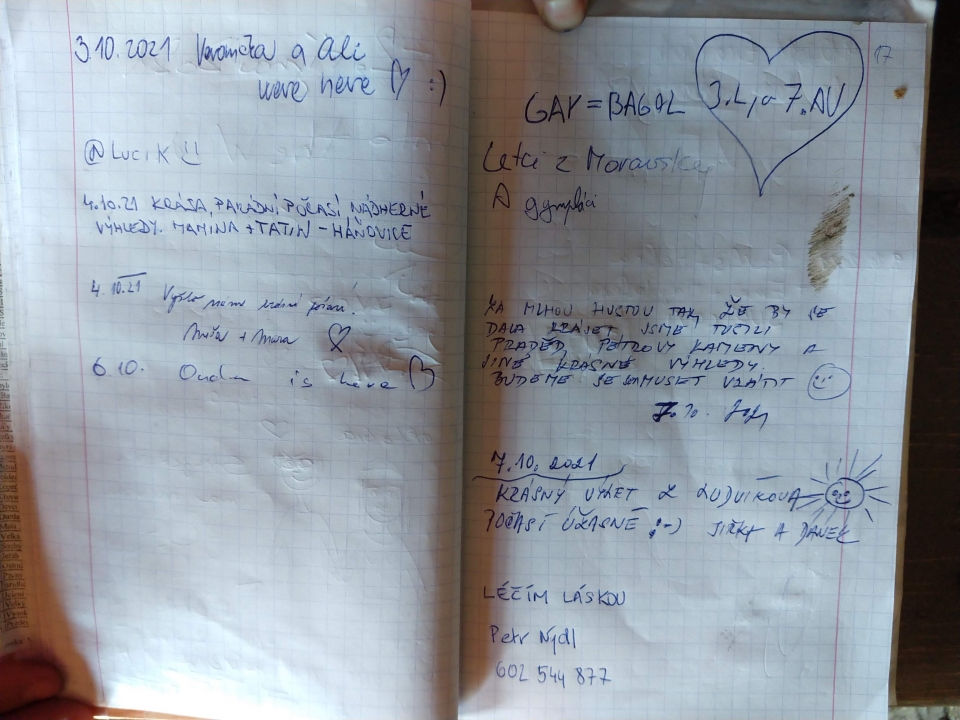 3.10.2021 Verunička a Ali
were here :)
@Lucik
4.10.21 KRÁSA, PARÁDNÍ POČASÍ, NÁDHERNÉ
VÝHLEDY. MAMINA + TATIN - HÁŇOVICE
4.10.21 Vyšlo nám krásné
+
6.10. is here
17
GAY = BAGOL 3.L, a 7.AV
Letci z Moravský
A gympláci
ZA MLHOU HUSTOU TAK, ŽE BY SE
DALA KRÁJET, JSME TUŠILI
PRADĚD, PETROVY KAMENY A
JINÉ KRÁSNÉ VÝHLEDY.
BUDEME SE SEM MUSET VRÁTIT
7.10.
7.10.2021
KRÁSNÝ VÝLET Z LUDVÍKOVA
POČASÍ ÚŽASNÉ :-) JIŘKY A DANEK
LÉČÍM LÁSKOU
Petr Nýdl
602 544 877